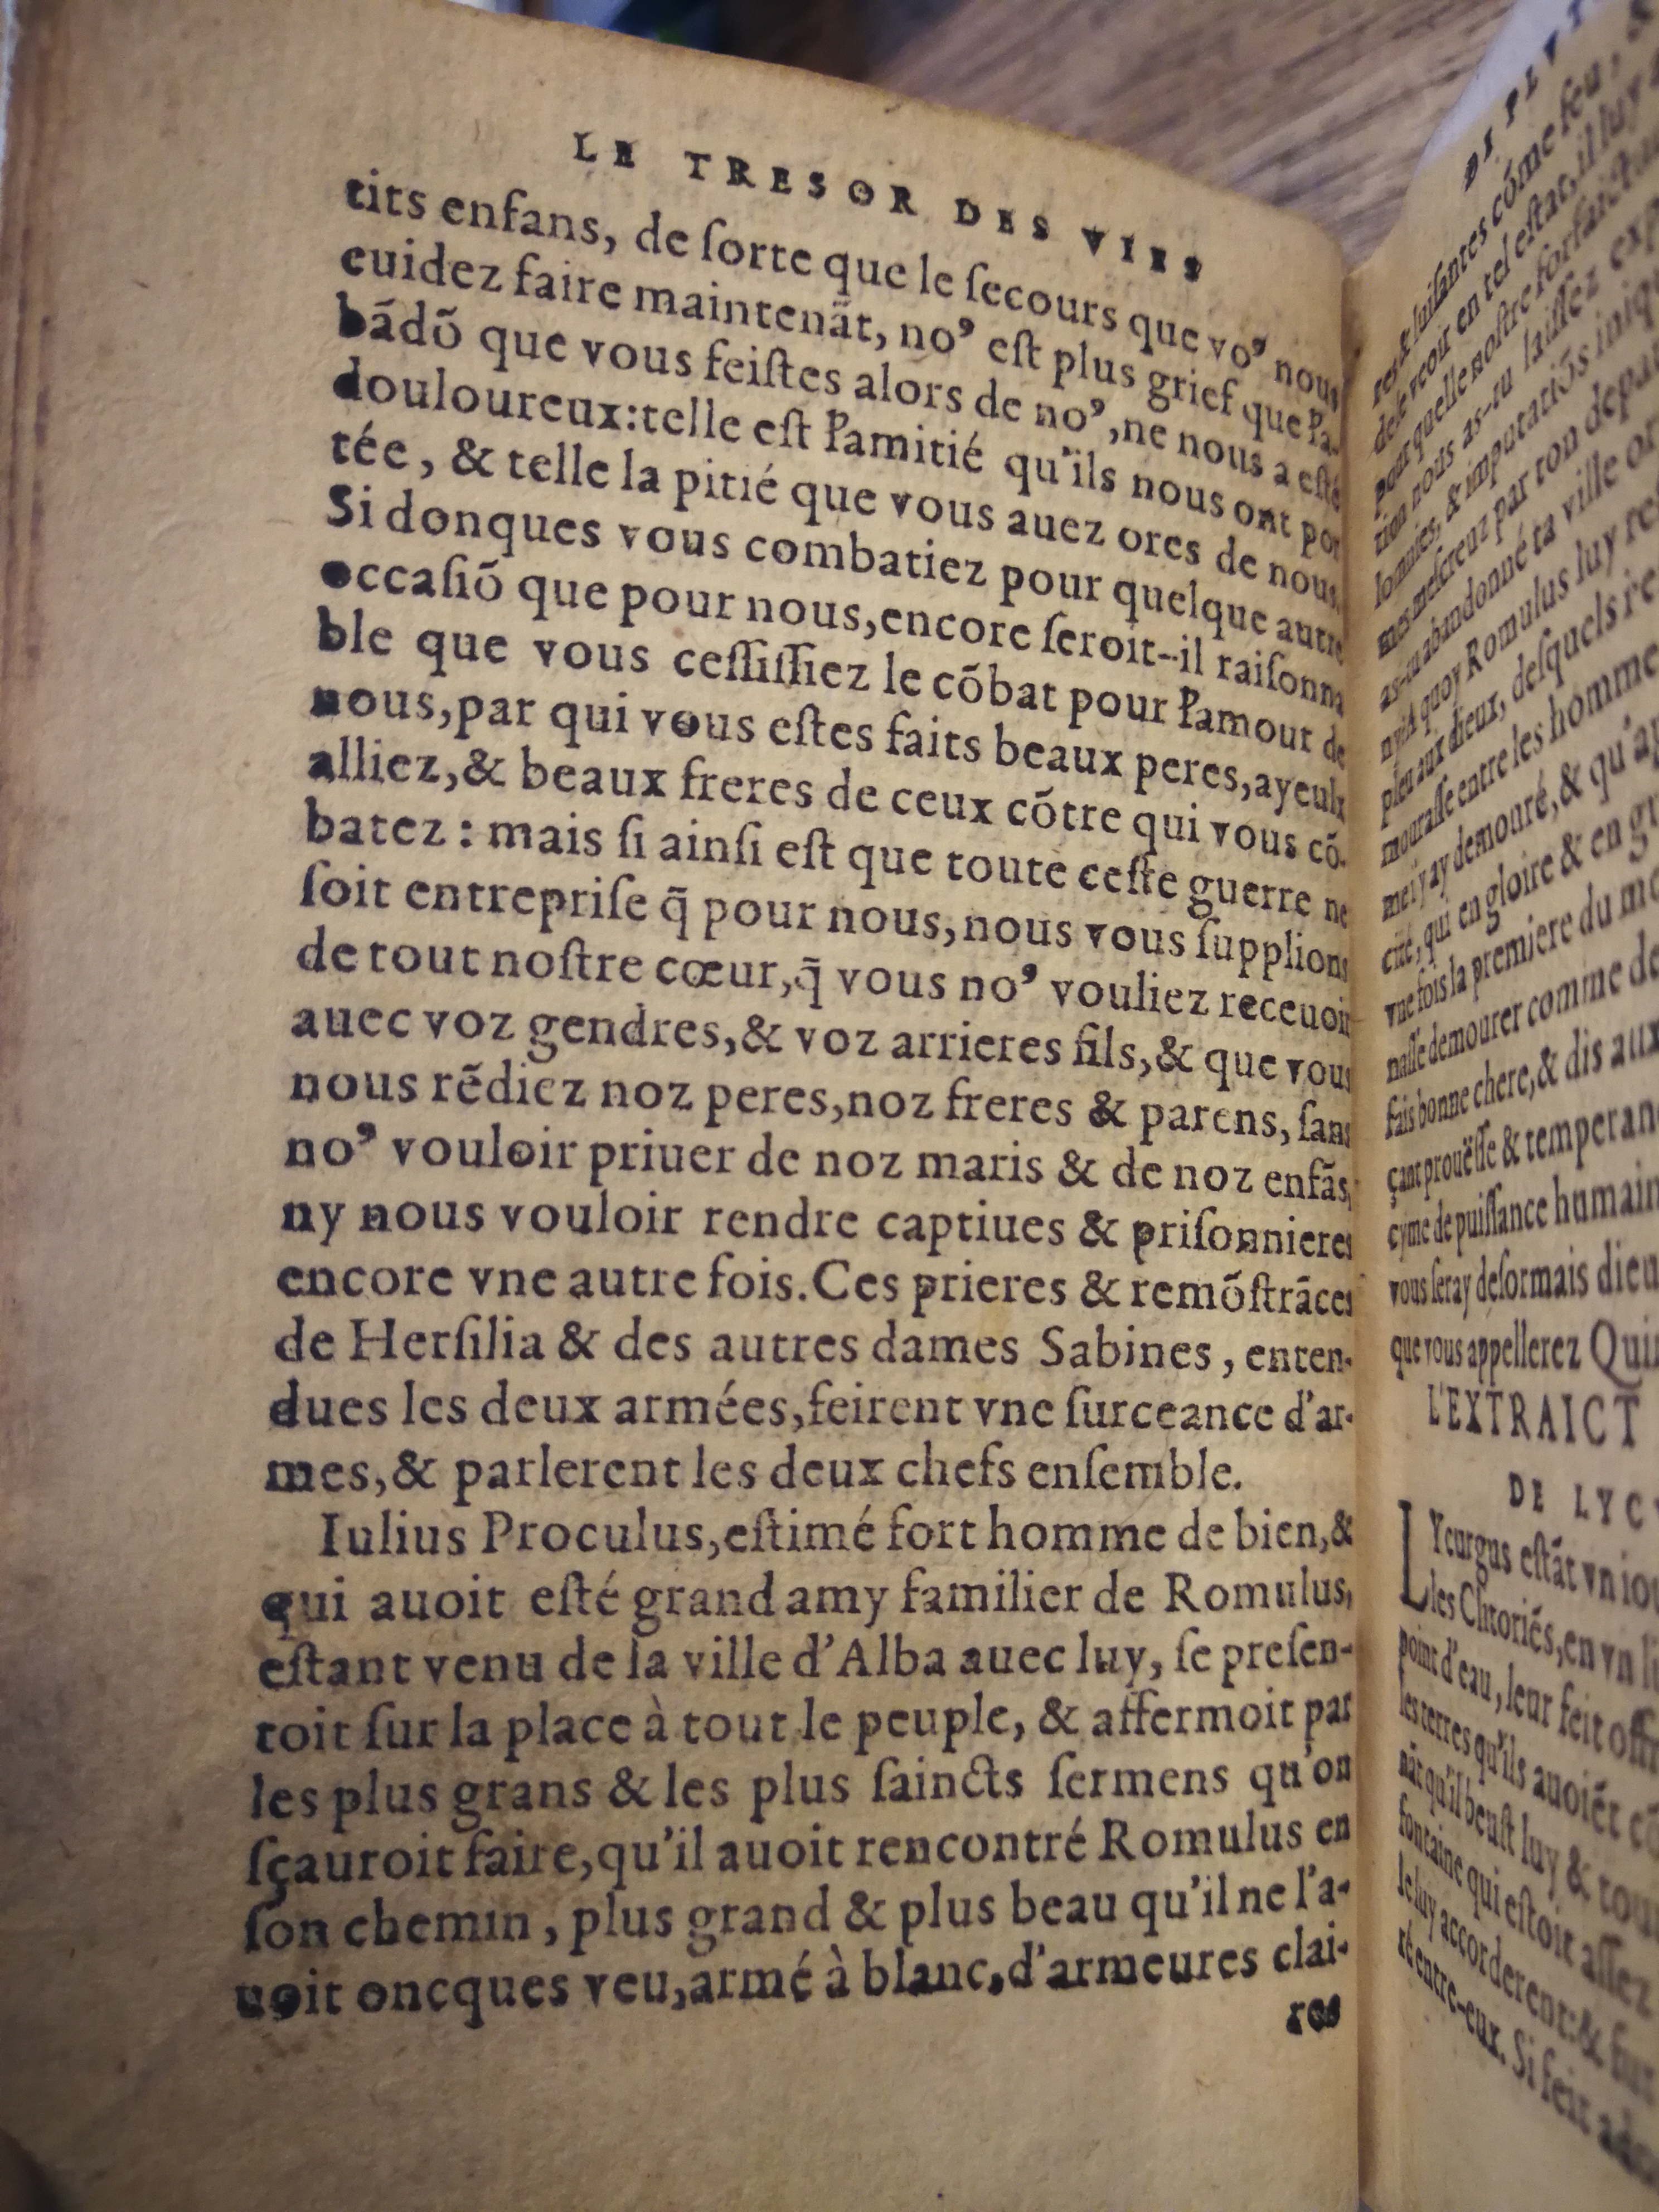 LE TRESOR DES VIES
tits enfans, de ſorte que le ſecours que vo⁹ nous
cuidez faire maintenãt, no⁹ eſt plus grief que l'a-
bãdõ que vous feiſtes alors de no⁹, ne nous a eſté
douloureux: telle eſt l'amitié qu'ils nous ont por
tée, & telle la pitié que vous auez ores de nous.
Si donques vous combatiez pour quelque autre
occaſiõ que pour nous, encore ſeroit-il raiſonna
ble que vous ceſſiſſiez le cõbat pour l'amour de
nous, par qui vous eſtes faits beaux peres, ayeulx
alliez, & beaux freres de ceux cõtre qui vous cõ-
batez : mais ſi ainſi eſt que toute ceſte guerre ne
ſoit entrepriſe q̃ pour nous, nous vous ſupplions
de tout noſtre cœur, q̃ vous no⁹ vouliez receuoir
auec voz gendres, & voz arrieres fils, & que vous
nous rẽdiez noz peres, noz freres & parens, ſans
no⁹ vouloir priuer de noz maris & de noz enfãs,
ny nous vouloir rendre captiues & priſonnieres
encore vne autre fois. Ces prieres & remõſtrãces
de Herſilia & des autres dames Sabines, enten-
dues les deux armées, feirent vne ſurceance d'ar-
mes, & parlerent les deux chefs enſemble.
Iulius Proculus, eſtimé fort homme de bien, &
qui auoit eſté grand amy familier de Romulus,
eſtant venu de la ville d'Alba auec luy, ſe preſen-
toit ſur la place à tout le peuple, & affermoit par
les plus grans & les plus ſaincts ſermens qu'on
ſçauroit faire, qu'il auoit rencontré Romulus en
ſon chemin, plus grand & plus beau qu'il ne l'a-
uoit oncques veu, armé à blanc, d'armeures clai-
res
DE PLVT
res & luiſantes cõme feu,
de te veoir en tel eſtat, il luy
pour quelle noſtre forfaicture
tion nous as-tu laiſſez
lomnies, & imputatiõs iniqu
mes meſcreuz par ton depar
as-tu abandonné ta ville or
quoy Romulus luy reſ
pleu aux dieux, deſquels i'e
mouraſſe entre les homme
mei y ay demouré, & qu'ap
cité, qui en gloire & en gr
vne fois la premiere du mo
naſſe demourer comme de
fais bonne chere, & dis aux
çant proüeſſe & temperan
cyme de puiſſance humain
vous ſeray deſormais dieu
que vous appellerez Quir
L'EXTRAICT
DE LYCV
LYcurgus eſtãt vn iou
les Clitoriẽs, en vn li
point d'eau, leur feit offr
les terres qu'ils auoiẽt cõ
nãt qu'il beuſt luy & tou
fontaine qui eſtoit aſſez
le luy accorderent: & fut
ré entre-eux. Si feit